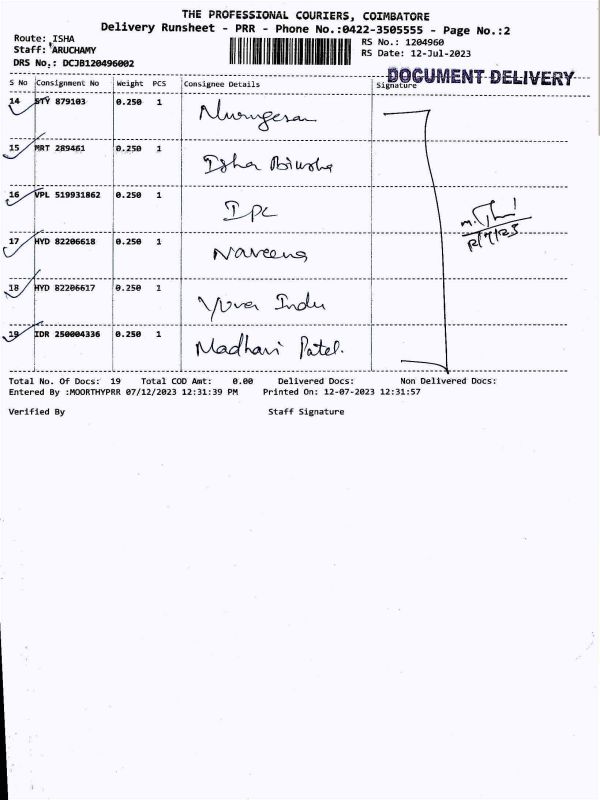 THE PROFESSIONAL COURIERS, COIMBATORE
Delivery Runsheet - PRR - Phone No.:0422-3505555 - Page No.:2
Route: ISHA
RS No.: 1204960
Staff: ARUCHAMY
RS Date: 12-Jul-2023
DRS No.: DCJB120496002
DOCUMENT DELIVERY
S No Consignment No Weight PCS Consignee Details Signature
14 STY 879103 0.250 1 Murugesan
15 MRT 289461 0.250 1 Isha
16 VPL 519931862 0.250 1 IPC
17 HYD 82206618 0.250 1 Naveena
18 HYD 82206617 0.250 1 Yuva Indu
19 IDR 250004336 0.250 1 Madhavi Patel.
12/7/23
Total No. Of Docs: 19 Total COD Amt: 0.00 Delivered Docs: Non Delivered Docs:
Entered By :MOORTHYPRR 07/12/2023 12:31:39 PM Printed On: 12-07-2023 12:31:57
Verified By Staff Signature